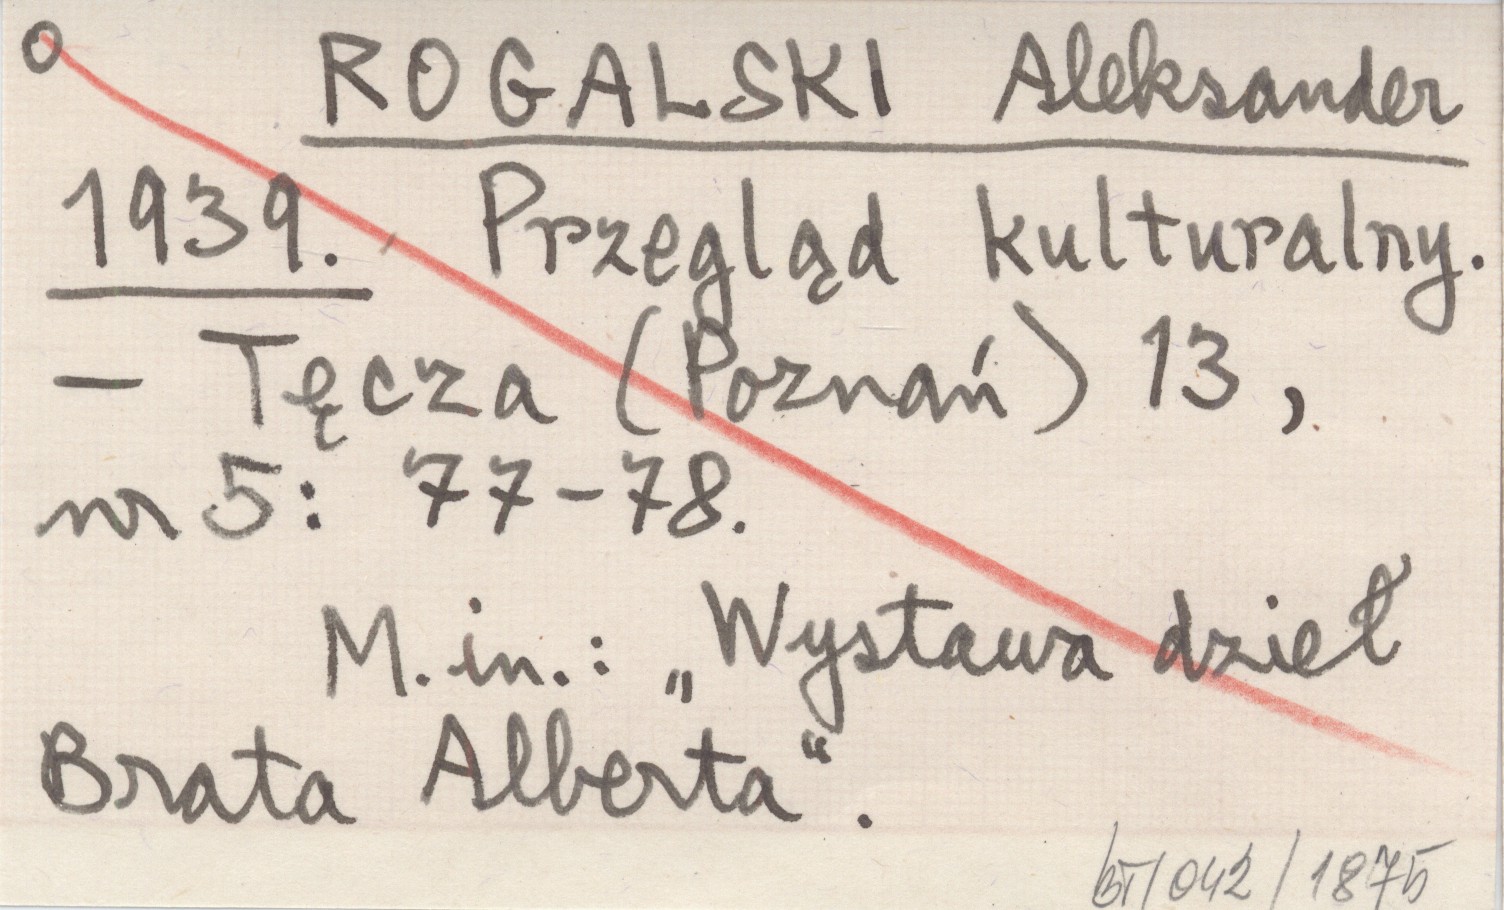 O ROGALSKI Aleksander
1939. Przegląd kulturalny.
— Tęcza (Poznań) 13,
nr 5: 77-78.
M.in.: „Wystawa dzieł
Brata Alberta“.
BT/042/1875